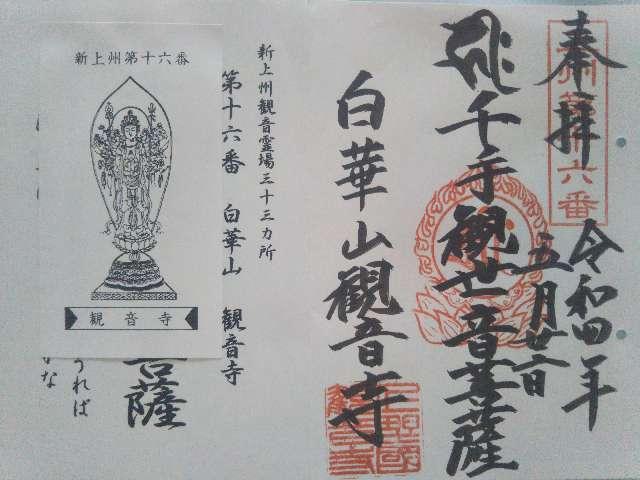 奉拝
令和四年
五月廿六日
千手観世音菩薩
白華山観音寺
新上州観音霊場三十三カ所
第十六番 白華山 観音寺
菩薩
うれば
新上州第十六番
観音寺